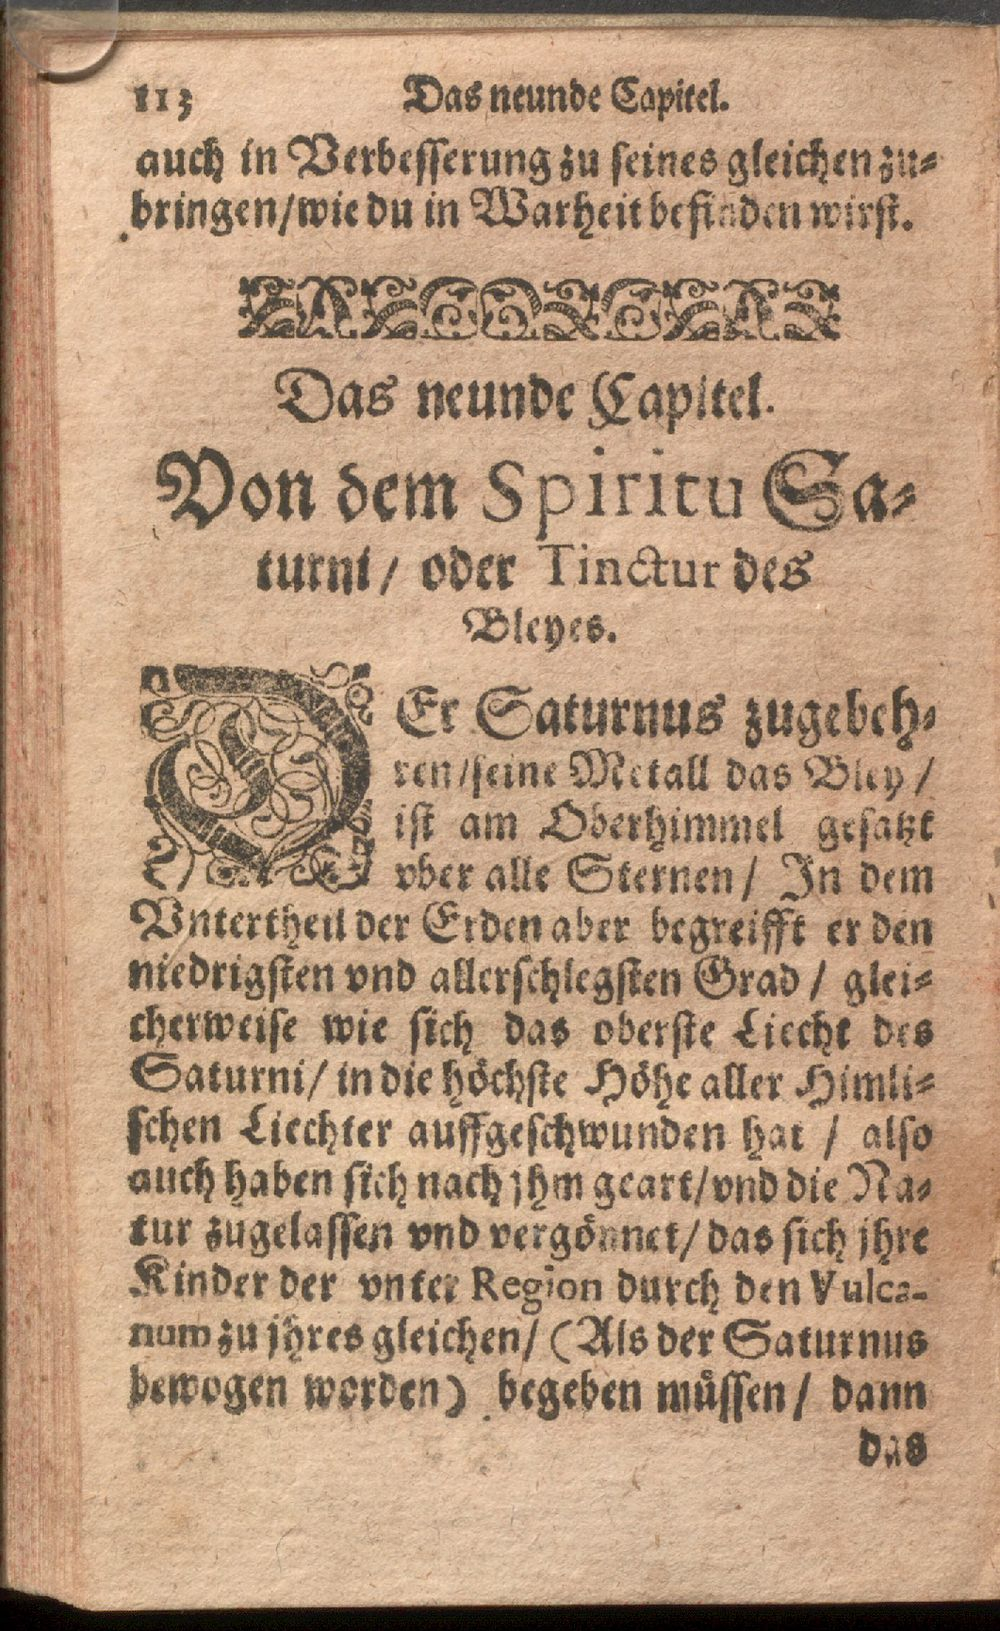 113 Das neunde Capitel.
auch in Verbesserung zu seines gleichen zu-
bringen/wie du in Warheit befinden wirst.
Das neunde Capitel.
Von dem Spiritu Sa-
turni/ oder Tinctur des
Bleyes.
DEr Saturnus zugebeh-
ren/seine Metall das Bley/
ist am Oberhimmel gesatzt
vber alle Sternen/ In dem
Vntertheil der Erden aber begreifft er den
niedrigsten vnd allerschlegsten Grad/ glei-
cherweise wie sich das oberste Liecht des
Saturni/ in die höchste Höhe aller Himli-
schen Liechter auffgeschwunden hat/ also
auch haben sich nach jhm geart/vnd die Na-
tur zugelassen vnd vergönnet/ das sich jhre
Kinder der vnter Region durch den Vulca-
num zu jhres gleichen/ (Als der Saturnus
bewogen worden) begeben müssen/ dann
das